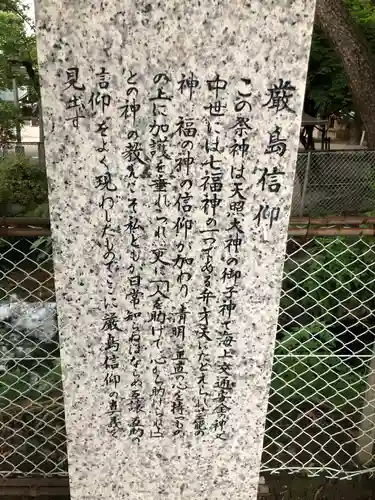 厳島信仰
この祭神は天照大神の御子神で海上交通安全の神と
中世には七福神の一つである弁才天にたとえて
神 福の神の信仰が加わり 清明 正直の心を持つもの
の上に加護を垂れ つれづれ更に「人を助けて 心から助け
との神の教えこそ私どもが日常知らねばならぬ
信仰をよく現わしたものでここに厳島信仰の真義を
見出す